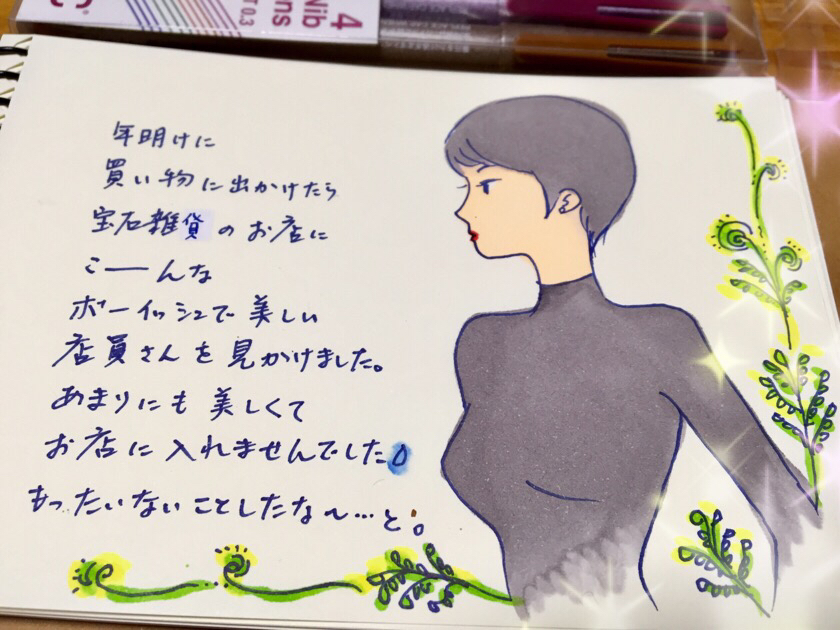 4
Nib
T 0.3
年明けに
買い物に出かけたら
宝石雑貨のお店に
こーーんな
ボーイッシュで美しい
店員さんを見かけました。
あまりにも美しくて
お店に入れませんでした。
もったいないことしたな〜…と。